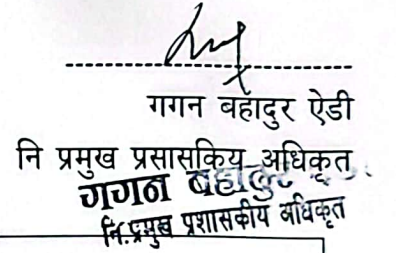 गगन बहादुर ऐडी
नि प्रमुख प्रसासकिय अधिकृत
गगन बहादुर
नि.प्रमुख प्रशासकीय अधिकृत